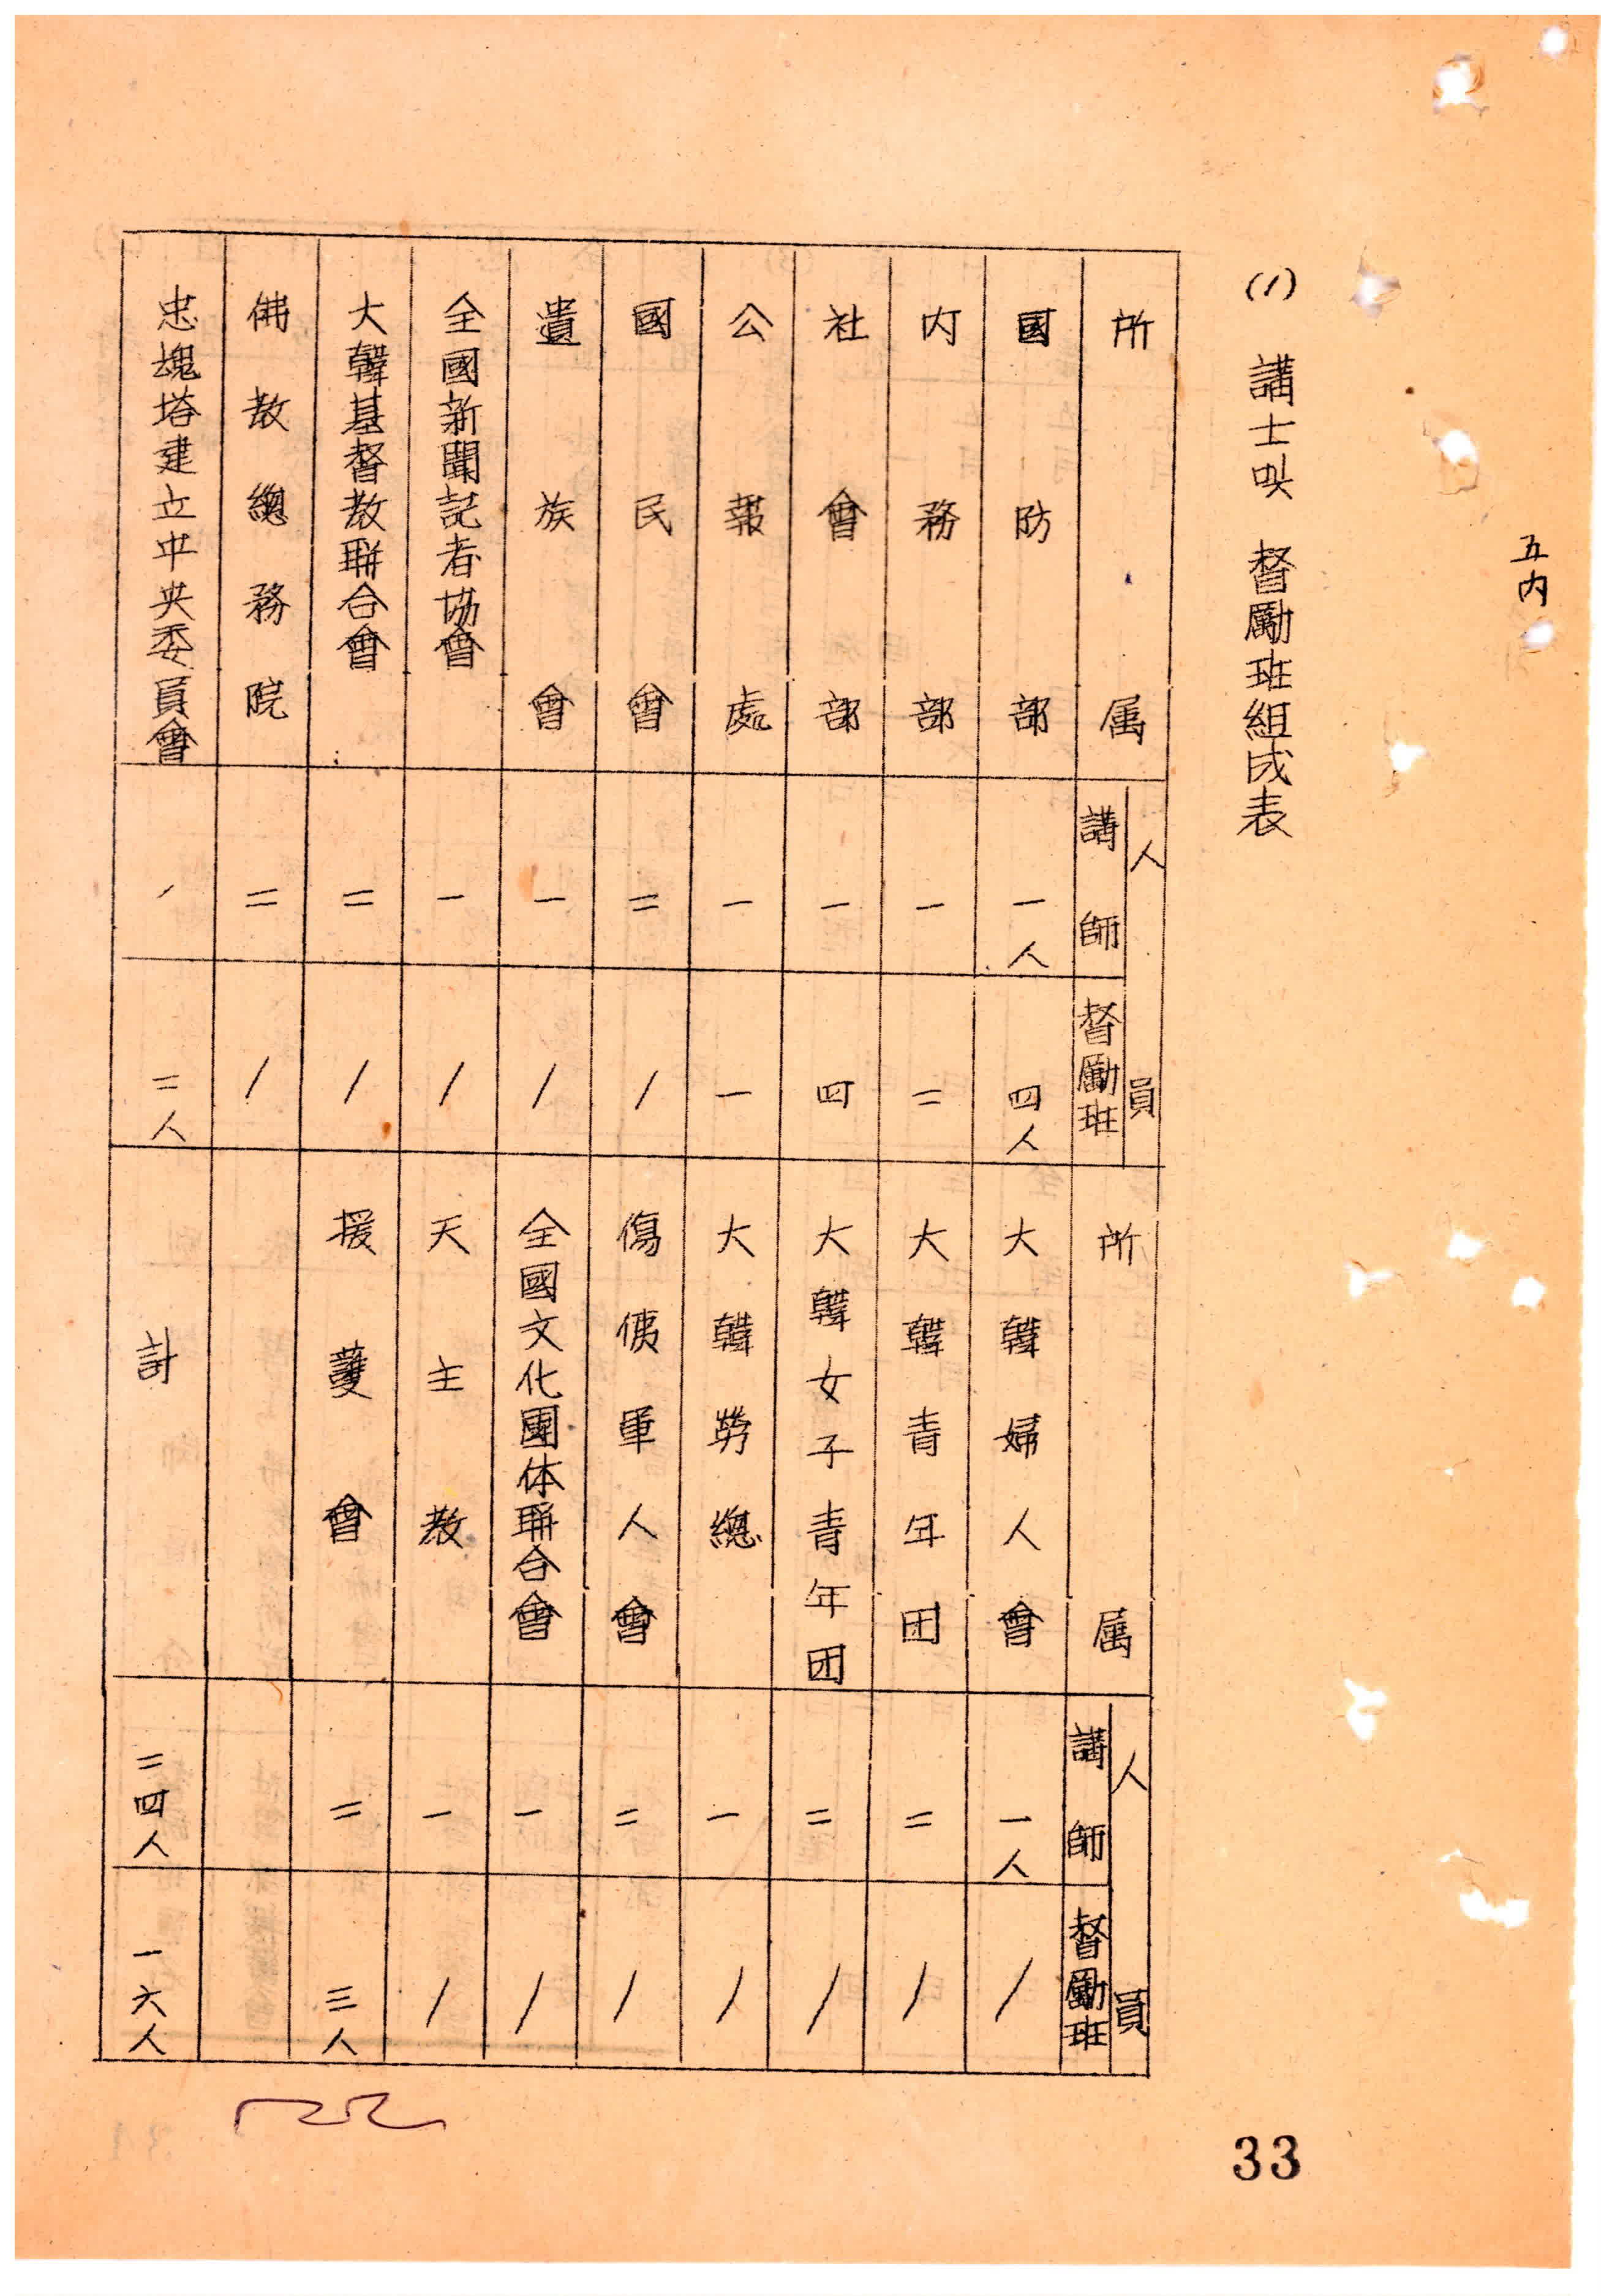 五内
(1) 講士및 督勵班組成表
所属 人員 講師 督勵班
國防部 一人 四人
内務部 一 二
社會部 一 四
公報處 一 一
國民會 二 /
遺族會 一 /
全國新聞記者協會 一 /
大韓基督教聯合會 二 /
佛教總務院 二 /
忠塊塔建立中央委員會 / 二人
所属 人員 講師 督勵班
大韓婦人會 一人 /
大韓青年团 二 /
大韓女子青年团 二 /
大韓勞總 一 /
傷痍軍人會 二 /
全國文化團体聯合會 一 /
天主教 一 /
援護會 二 三人
計 二四人 一六人
33